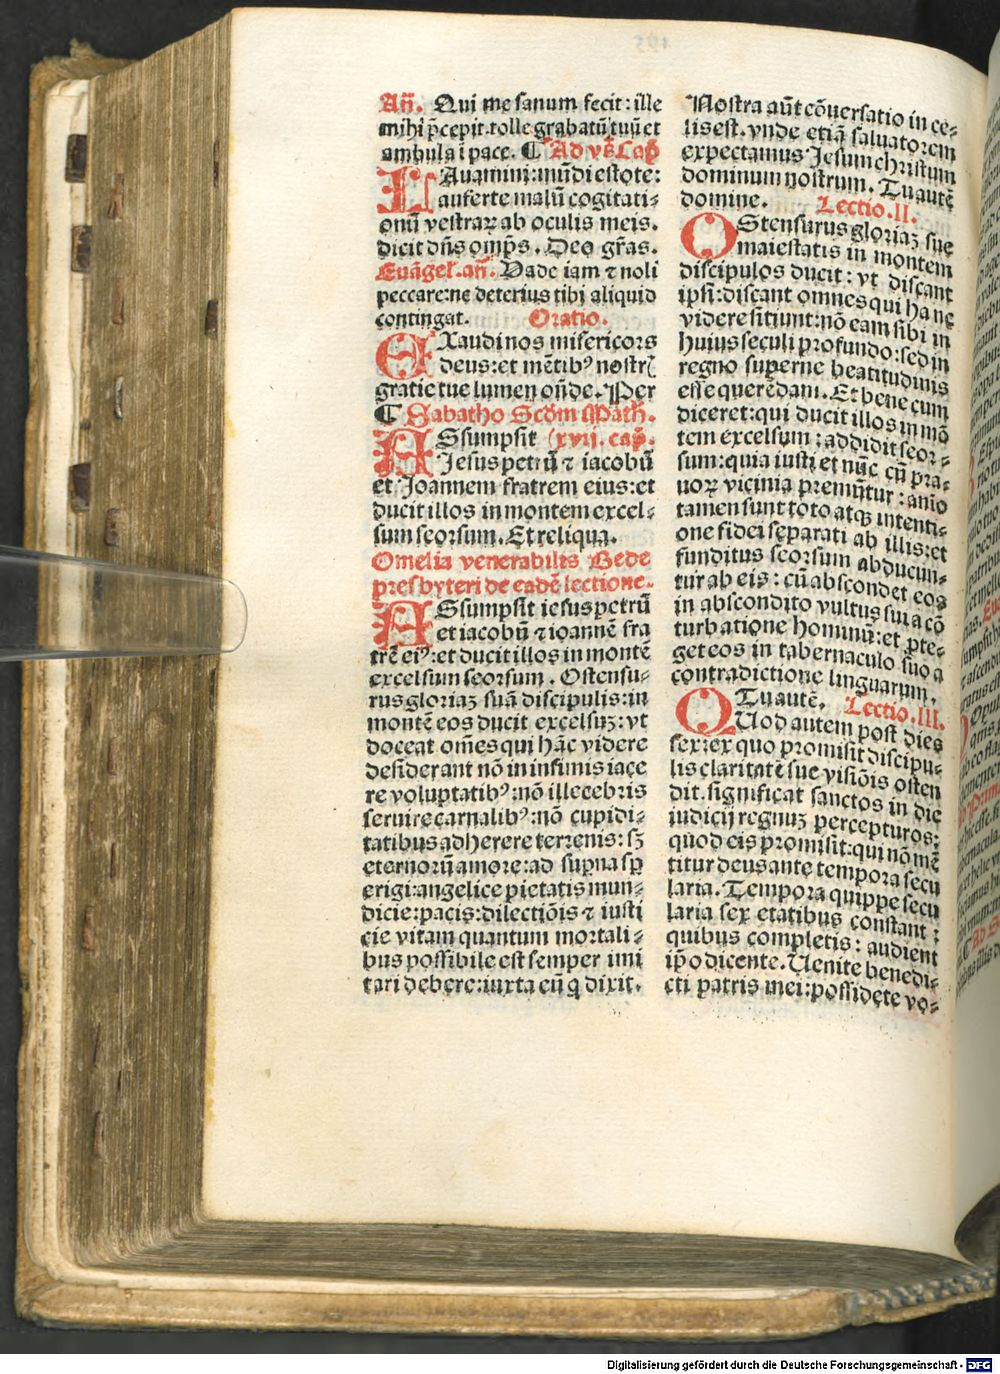 Añ. Qui me sanum fecit: ille
mihi p̄cepit. tolle grabatū tuū et
ambula ī pace. ¶ Ad vs̄ Cap̄
LAuamini: mūdi estote:
auferte malū cogitati⸗
onū vestraꝝ ab oculis meis.
dicit dn̄s omp̄s. Deo gr̄as.
Euāgel̄. añ. Vade iam ⁊ noli
peccare: ne deterius tibi aliquid
contingat. Oratio.
EXaudi nos misericors
deus: et mētibꝰ nostr(
gratie tue lumen on̄de. Per
¶ Sabatho Scd̄m Math̄.
ASsumpsit (xvij. cap̄.
Jesus petrū ⁊ iacobū
et Joannem fratrem eius: et
ducit illos in montem excel⸗
sum seorsum. Et reliqua.
Omelia venerabilis Bede
presbyteri de eadē lectione.
ASsumpsit iesus petrū
et iacobū ⁊ ioannē fra
trē eiꝰ: et ducit illos in montē
excelsum seorsum. Ostensu⸗
rus gloriaz suā discipulis: in
montē eos ducit excelsuz: vt
doceat om̄es qui hāc videre
desiderant nō in infimis iace
re voluptatibꝰ: nō illecebris
seruire carnalibꝰ: nō cupidi⸗
tatibus adherere terrenis: sꝫ
eternorū amore: ad sup̄na sꝑ
erigi: angelice pietatis mun⸗
dicie: pacis: dilectiōis ⁊ iusti
cie vitam quantum mortali⸗
bus possibile est semper imi
tari debere: iuxta eū q̄ dixit.
Nostra aūt cōuersatio in ce⸗
lis est. vnde etiā saluatorem
expectamus Jesum christum
dominum nostrum. Tu autē
domine. Lectio. II.
OStensurus gloriaz sue
maiestatis in montem
discipulos ducit: vt discant
ipsi: discant omnes qui ha nc
videre sitiunt: nō eam sibi in
huius seculi profundo: sed in
regno superne beatitudinis
esse querēdam. Et bene cum
diceret: qui ducit illos in mō
tem excelsum: addidit seor⸗
sum: quia iusti et nūc cū pra⸗
uoꝝ vicinia premūtur: anīo
tamen sunt toto atqꝫ intenti⸗
one fidei separati ab illis: et
funditus seorsum abducun⸗
tur ab eis: cū abscondet eos
in abscondito vultus sui a cō
turbatione hominū: et ꝓte⸗
get eos in tabernaculo suo a
contradictione linguarum.
Tu autē. Lectio. III.
QUod autem post dies
sex: ex quo promisit discipu⸗
lis claritatē sue visiōis osten
dit. significat sanctos in die
iudicij regnuz percepturos:
quod eis promisit: qui nō mē
titur deus ante tempora secu
laria. Tempora quippe secu
laria sex etatibus constant:
quibus completis: audient
ip̄o dicente. Uenite benedi⸗
cti patris mei: possidete vo⸗
Digitalisierung gefördert durch die Deutsche Forschungsgemeinschaft - DFG